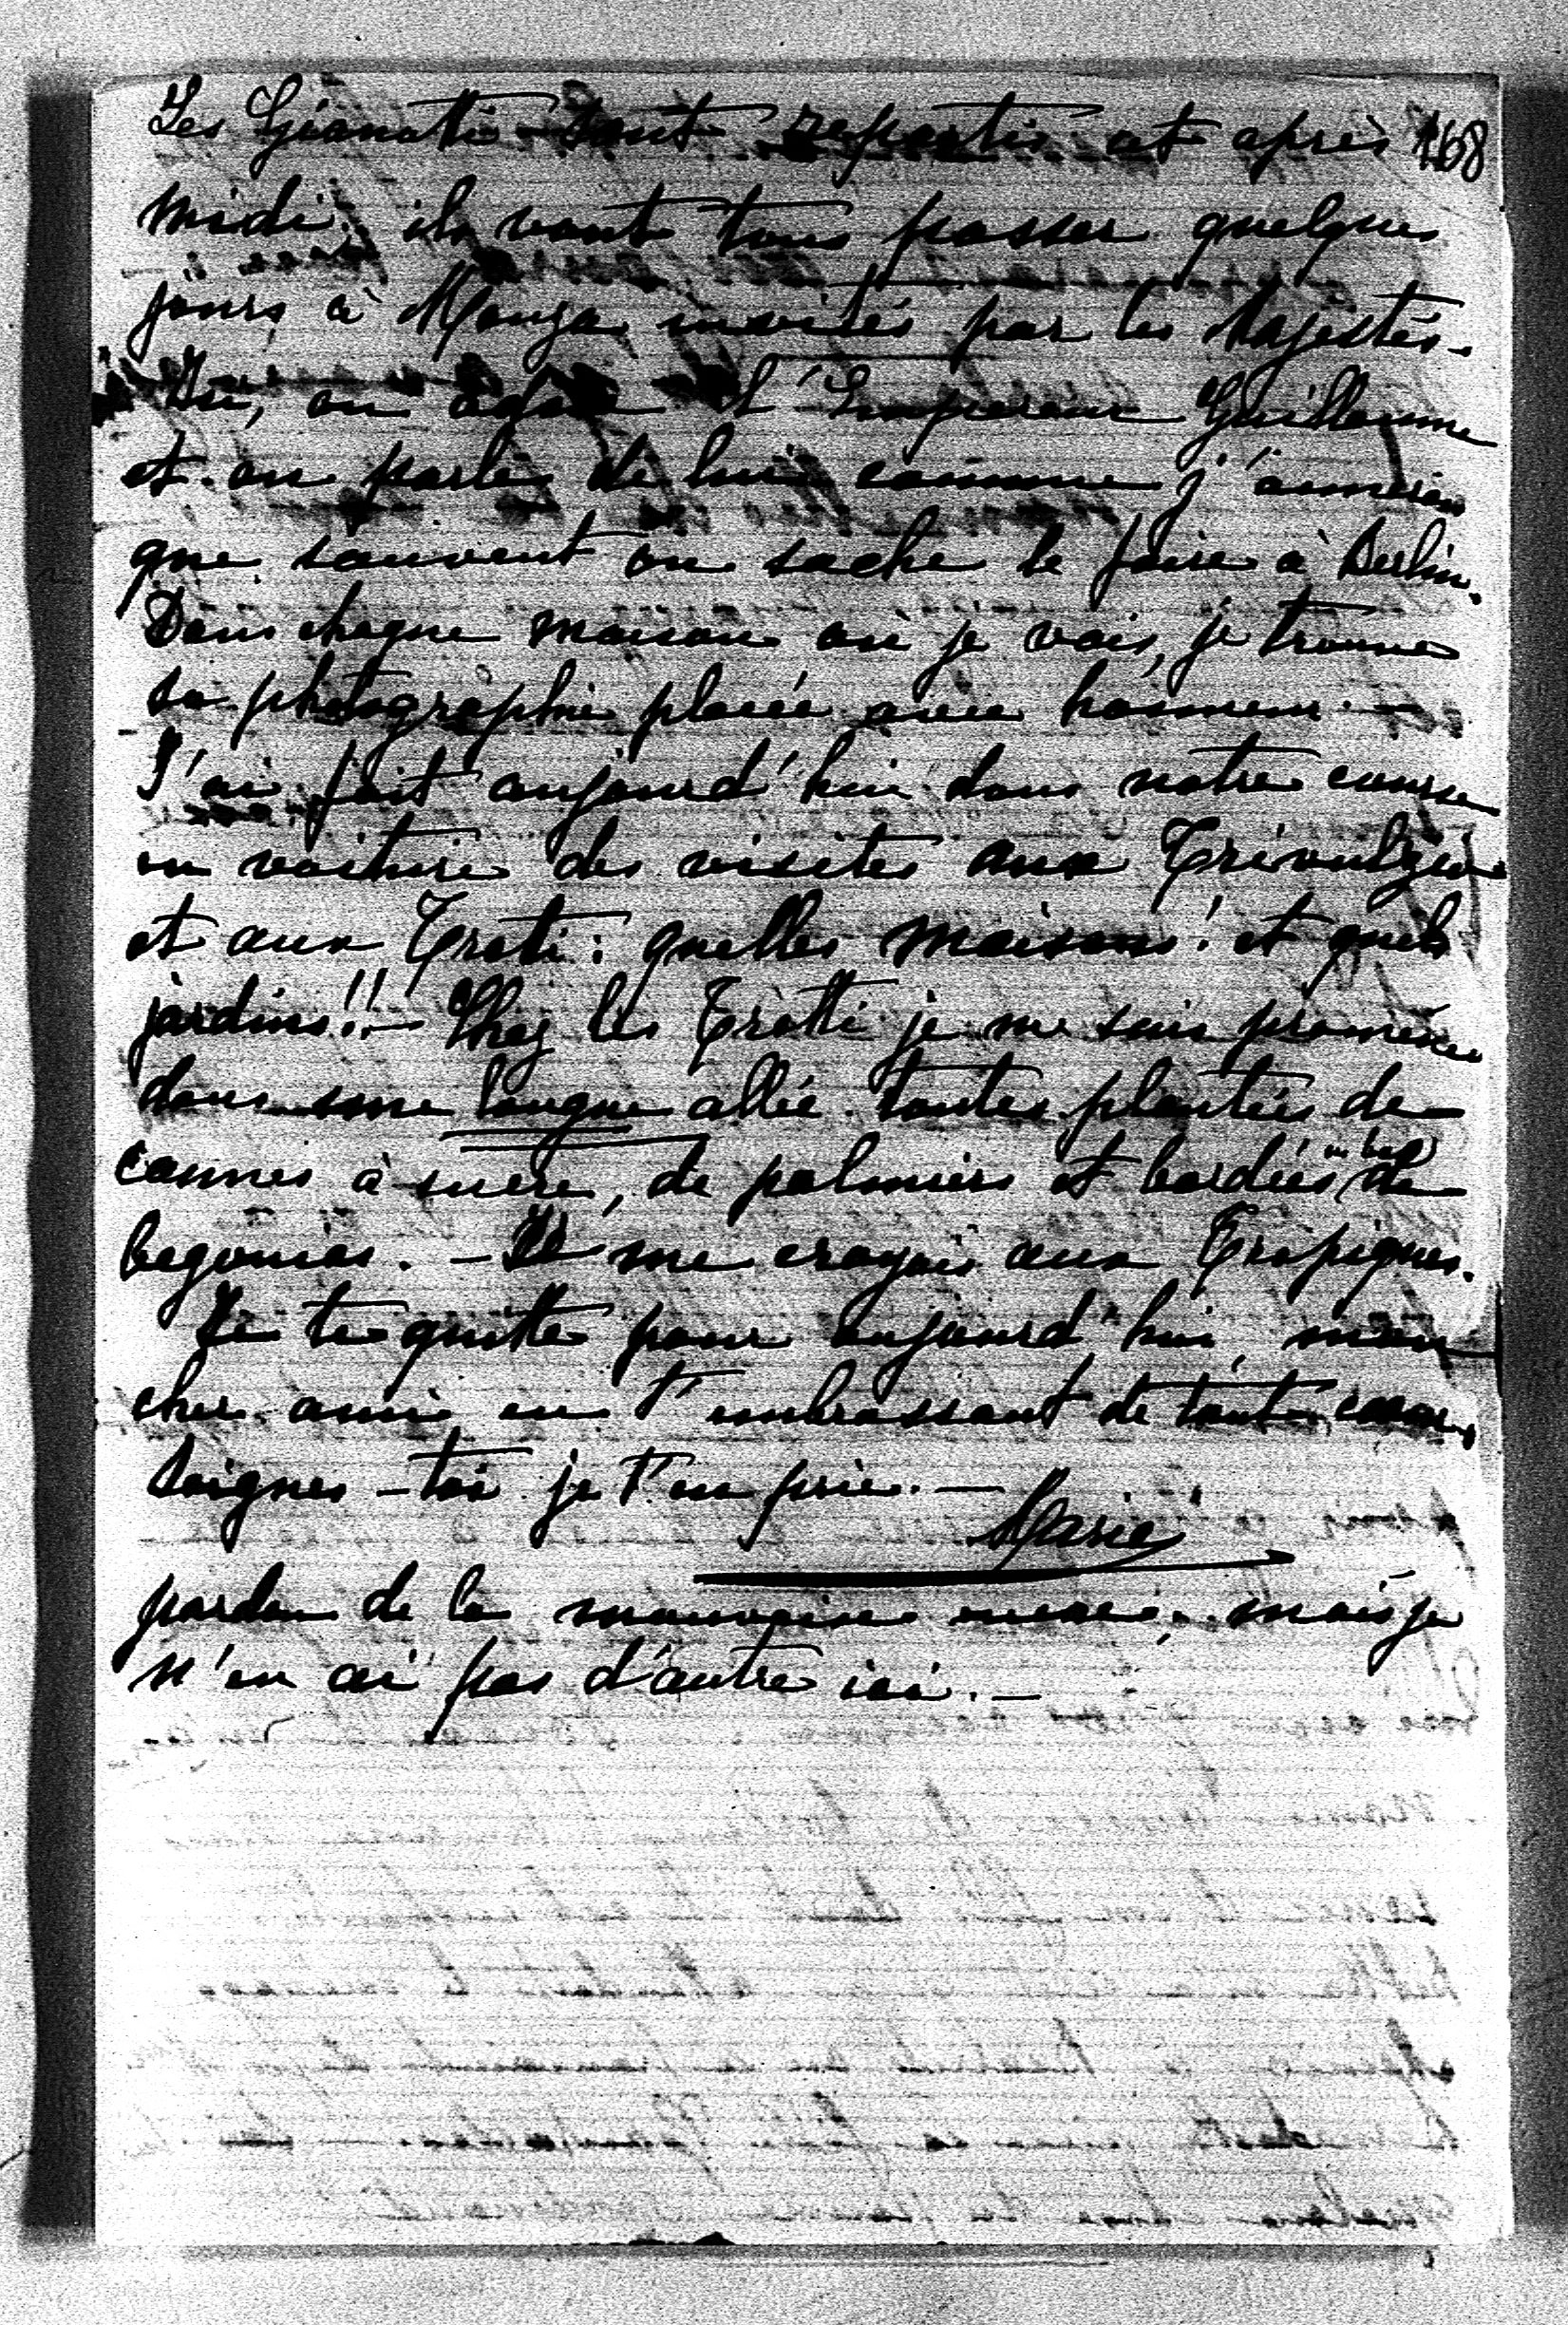 Les Gianotti sont repartis cet après 168
midi, ils vont tous passer quelques
jours à Monza invités par les Majestés.
Ici, on adore l'Empereur Guillaume
et on parle de lui comme j'aimerais
que souvent on sache le faire à Berlin.
Dans chaque maison où je vais, je trouve
sa photographie placée avec honneur. —
J'ai fait aujourd'hui dans notre course
en voiture des visites aux Trivulzio
et aux Trotti: quelles maisons! et quels
jardins!! — Chez les Trotti je me suis promenée
dans une longue allée toutes plantées de
cannes à sucre, de palmiers et bordées en bas de
begonias. — Je me croyais aux Tropiques.
Je te quitte pour aujourd'hui, mon
cher ami en t'embrassant de tout cœur,
Soignes-toi je t'en prie. —
Marie
pardon de la mauvaise encre, mais je
n'en ai pas d'autre ici. —